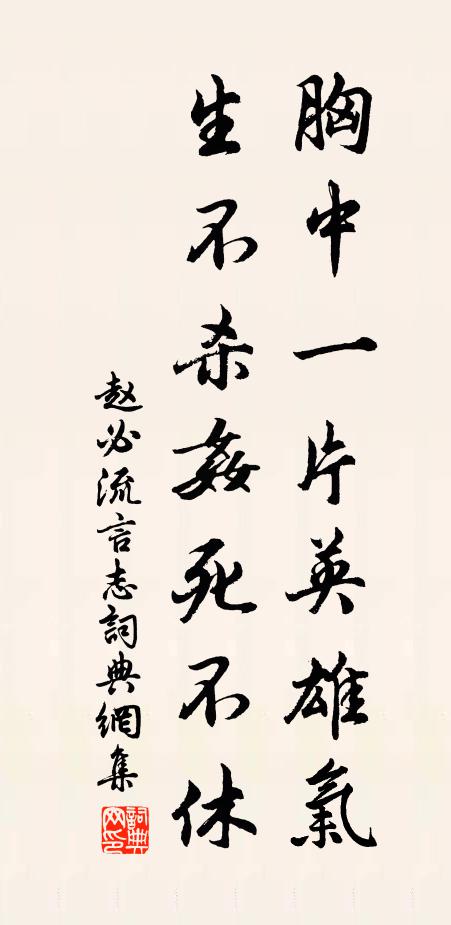 胸中一片英雄氣
生不杀姦死不休
赵必流言志詞典網集
詞典网印